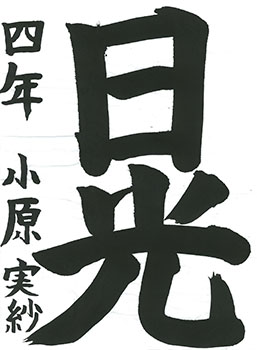 日光
四年 小原実紗